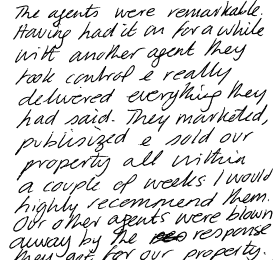 The agents were remarkable.
Having had it on for a while
with another agent they
took control & really
delivered everything they
had said. They marketed,
publisized & sold our
property all within
a couple of weeks I would
highly recommend them.
Our other agents were blown
away by the response
they got for our property.